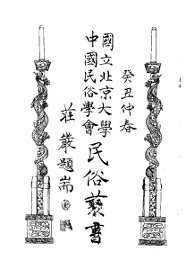 癸丑仲春
國立北京大學
中國民俗學會民俗叢書
莊嚴題耑